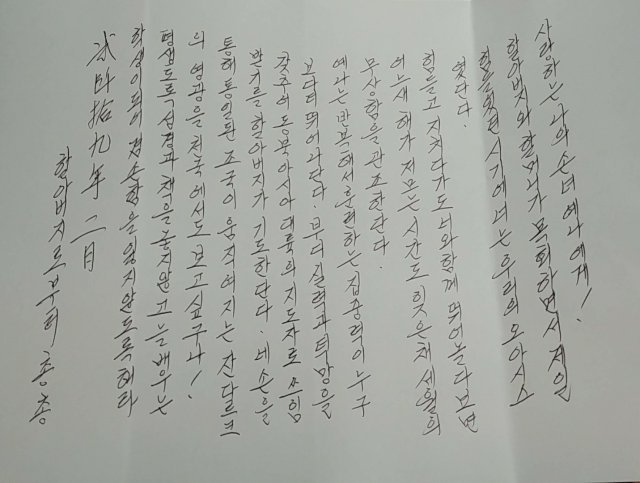 사랑하는 나의 손녀 예나에게!
할아버지와 할머니가 목회하면서 제일
힘들었던 시기에 너는 우리의 오아시스
였단다.
힘들고 지치다가도 너와함께 뛰어놀다보면
어느새 해가 저무는 시간도 잊은채 세월의
무상함을 관조한단다.
예나는 반복해서 훈련하는 집중력이 누구
보다더 뛰어나단다. 부디 실력과 덕망을
갖추어 동북아시아 대륙의 지도자로 쓰임
받기를 할아버지가 기도한단다. 네 손을
통해 통일된 조국이 움직여지는 잔다르크
의 영광을 천국에서도 보고싶구나!
평생도록 성경과 책을 놓지않고 늘 배우는
학생이 되어 겸손함을 잃지않도록 해라
貳阡拾九年 二月
할아버지로부터 총총